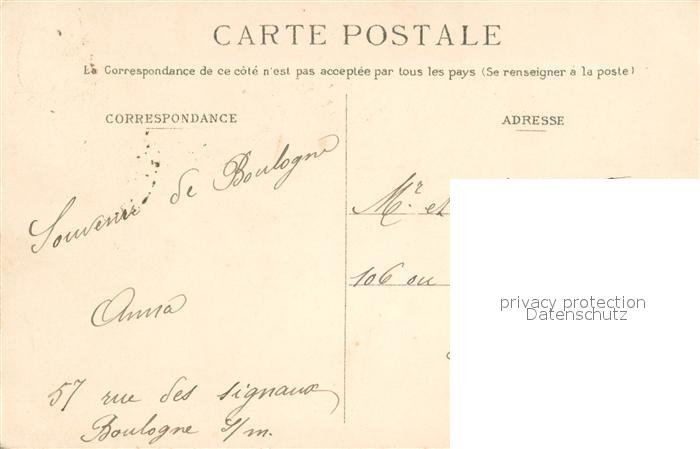 CARTE POSTALE
La Correspondance de ce côté n'est pas acceptée par tous les pays (Se renseigner à la poste)
CORRESPONDANCE
Souvenir de Boulogne
Anna
57 rue des signaux
Boulogne s/m.
ADRESSE
Mr. et
106 ou
privacy protection
Datenschutz